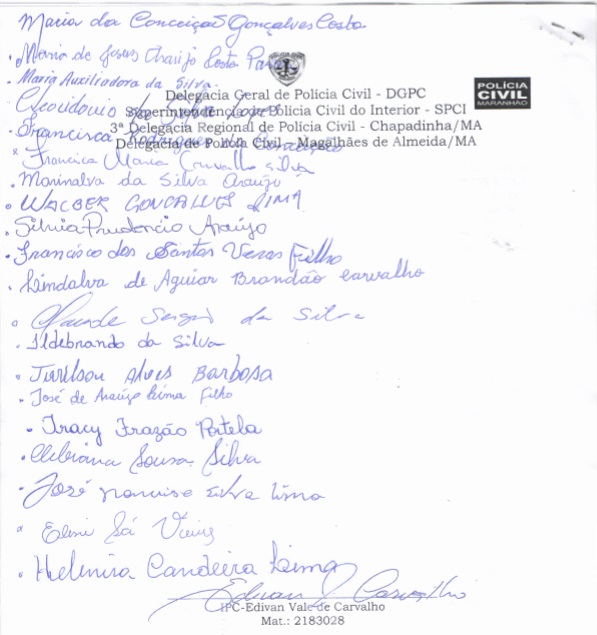 Maria da Conceição Gonçalves Costa
• Maria de Jesus Araujo Costa
• Maria Auxiliadora da Silva.
POLÍCIA
CIVIL
MARANHÃO
Delegacia Geral de Polícia Civil - DGPC
Superintendência de Polícia Civil do Interior - SPCI
3ª Delegacia Regional de Polícia Civil - Chapadinha/MA
Delegacia de Polícia Civil - Magalhães de Almeida/MA
• Francisca Rodrigues da
• Francisca Maria Carvalho Silva
• Marinalva da Silva Araújo
• WALBER GONCALVES LIMA
• Silvia Prudencio Araújo
• Francisco dos Santos Veras Filho
• Lindalva de Aguiar Brandão Carvalho
• Sergio da Silva
• Ildebrando da Silva
• Alves Barbosa
• José de Araújo Lima Filho
• Iracy Frazão Portela
• Sousa Silva
• José Silva Lima
• Sá
• Helenira Candeira Lima
Edivan Carvalho
IPC-Edivan Vale de Carvalho
Mat.: 2183028